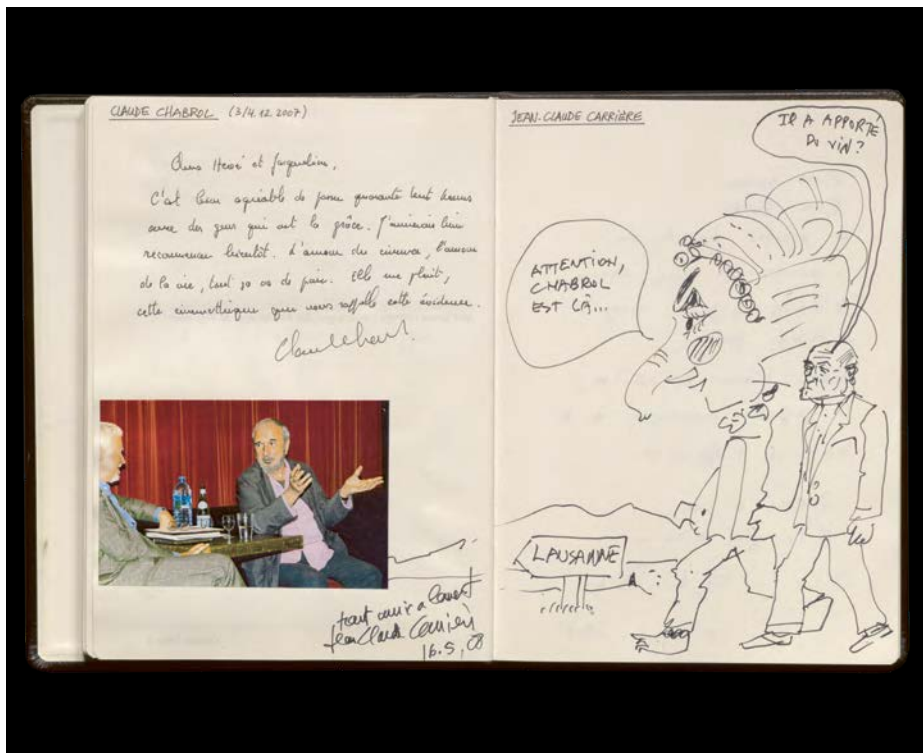 CLAUDE CHABROL (3/4.12.2007)
Hervé et Jacqueline,
C'est bien agréable de passer quarante huit heures
avec des gens qui ont la grâce. J'aimerais bien
recommencer bientôt. L'amour du cinéma, l'amour
de la vie, tout ça va de pair. Elle me plaît,
cette cinémathèque qui nous rappelle cette évidence.
tout ami
Jean Claude Carrière
16.5.08
JEAN-CLAUDE CARRIÈRE
IL A APPORTÉ
DU VIN?
ATTENTION,
CHABROL
EST LÀ...
LAUSANNE